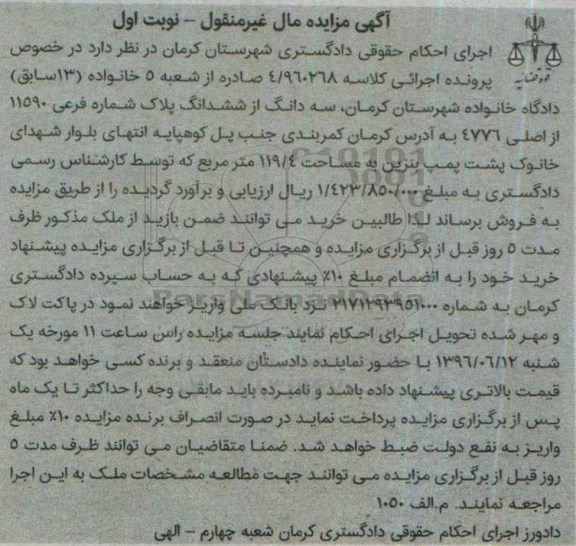 آگهی مزایده مال غیرمنقول – نوبت اول
اجرای احکام حقوقی دادگستری شهرستان کرمان در نظر دارد در خصوص
پرونده اجرائی کلاسه ٤/٩٦٠٢٦٨ صادره از شعبه ٥ خانواده (١٣سابق)
دادگاه خانواده شهرستان کرمان، سه دانگ از ششدانگ پلاک شماره فرعی ١١٥٩٠
از اصلی ٤٧٧٦ به آدرس کرمان کمربندی جنب پل کوهپایه انتهای بلوار شهدای
خانوک پشت پمپ بنزین به مساحت ١١٩/٤ متر مربع که توسط کارشناس رسمی
دادگستری به مبلغ ١/٤٢٣/٨٥٠/٠٠٠ ریال ارزیابی و برآورد گردیده را از طریق مزایده
به فروش برساند لذا طالبین خرید می توانند ضمن بازید از ملک مذکور ظرف
مدت ٥ روز قبل از برگزاری مزایده و همچنین تا قبل از برگزاری مزایده پیشنهاد
خرید خود را به انضمام مبلغ ١٠٪ پیشنهادی که به حساب سپرده دادگستری
کرمان به شماره ٢١٧١٢٩٣٩٥١٠٠٠ نزد بانک ملی واریز خواهند نمود در پاکت لاک
و مهر شده تحویل اجرای احکام نمایند جلسه مزایده راس ساعت ١١ مورخه یک
شنبه ١٣٩٦/٠٦/١٢ با حضور نماینده دادستان منعقد و برنده کسی خواهد بود که
قیمت بالاتری پیشنهاد داده باشد و نامبرده باید مابقی وجه را حداکثر تا یک ماه
پس از برگزاری مزایده پرداخت نماید در صورت انصراف برنده مزایده ١٠٪ مبلغ
واریز به نفع دولت ضبط خواهد شد. ضمنا متقاضیان می توانند ظرف مدت ٥
روز قبل از برگزاری مزایده می توانند جهت مطالعه مشخصات ملک به این اجرا
مراجعه نمایند. م.الف ١٠٥٠
دادورز اجرای احکام حقوقی دادگستری کرمان شعبه چهارم – الهی